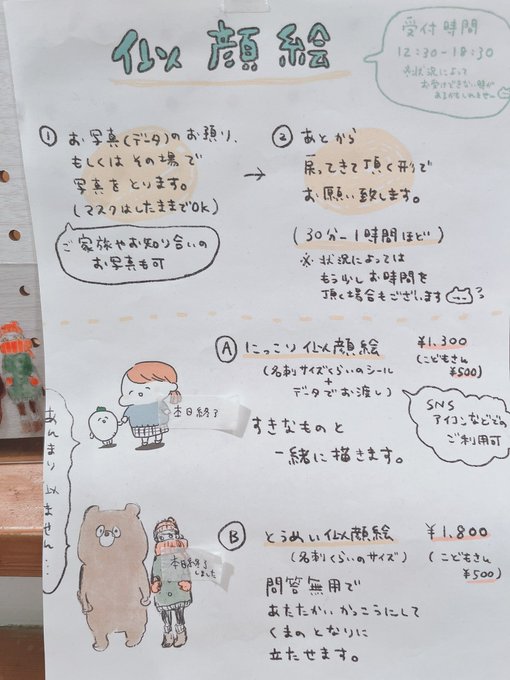 似顔絵
受付時間
12:30-18:30
※状況によって
お受けできない時が
あるかもしれませんー
① お写真(データ)のお預り、
もしくはその場で
写真をとります。
(マスクはしたままでOK)
ご家族やお知り合いの
お写真も可
→
② あとから
戻ってきて頂く形で
お願い致します。
(30分ー1時間ほど)
※状況によっては
もう少しお時間を
頂く場合もございます
Ⓐ にっこり似顔絵 ¥1,300
(名刺サイズくらいのシール
+
データでお渡し)
(こどもさん
¥500)
すきなものと
一緒に描きます。
SNS
アイコンなどでの
ご利用可
本日終了
あんまり似ません…
Ⓑ とうめい似顔絵 ¥1,800
(名刺くらいのサイズ)
(こどもさん
¥500)
問答無用で
あたたかいかっこうにして
くまのとなりに
立たせます。
本日終了
しました